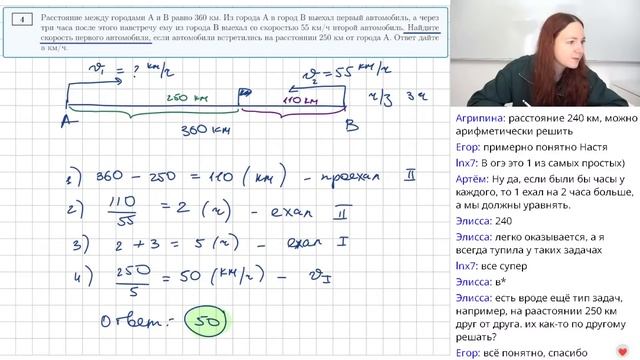 4
Расстояние между городами А и В равно 360 км. Из города А в город В выехал первый автомобиль, а через
три часа после этого навстречу ему из города В выехал со скоростью 55 км/ч второй автомобиль. Найдите
скорость первого автомобиля, если автомобили встретились на расстоянии 250 км от города А. Ответ дайте
в км/ч.
v₁ = ? км/ч
v₂ = 55 км/ч
250 км
110 км
ч/з 3ч
A
B
360 км
1) 360 - 250 = 110 (км) - проехал II
2) 110/55 = 2 (ч) - ехал II
3) 2 + 3 = 5 (ч) - ехал I
4) 250/5 = 50 (км/ч) - v I
Ответ: 50
Агрипина: расстояние 240 км, можно
арифметически решить
Егор: примерно понятно Настя
lnx7: В огэ это 1 из самых простых)
Артём: Ну да, если были бы часы у
каждого, то 1 ехал на 2 часа больше,
а мы должны уравнять.
Элисса: 240
Элисса: легко оказывается, а я
всегда тупила у таких задачах
lnx7: все супер
Элисса: в*
Элисса: есть вроде ещё тип задач,
например, на раастоянии 250 км
друг от друга. их как-то по другому
решать?
Егор: всё понятно, спасибо